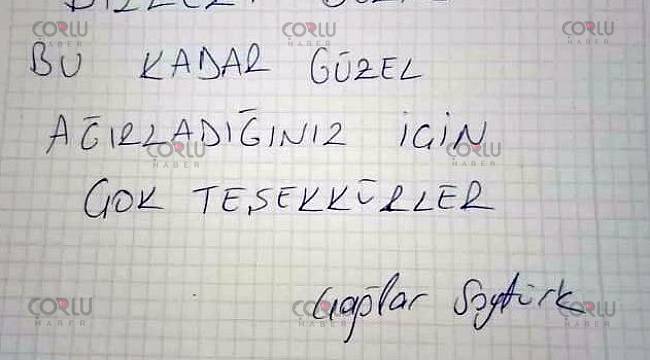 ÇORLU HABER ÇORLU HABER
BU KADAR GÜZEL
AĞIRLADIĞINIZ İÇİN
ÇORLU HABER ÇORLU HABER
ÇOK TEŞEKKÜRLER
Çağlar
ÇORLU HABER ÇORLU HABER ÇORLU HABER